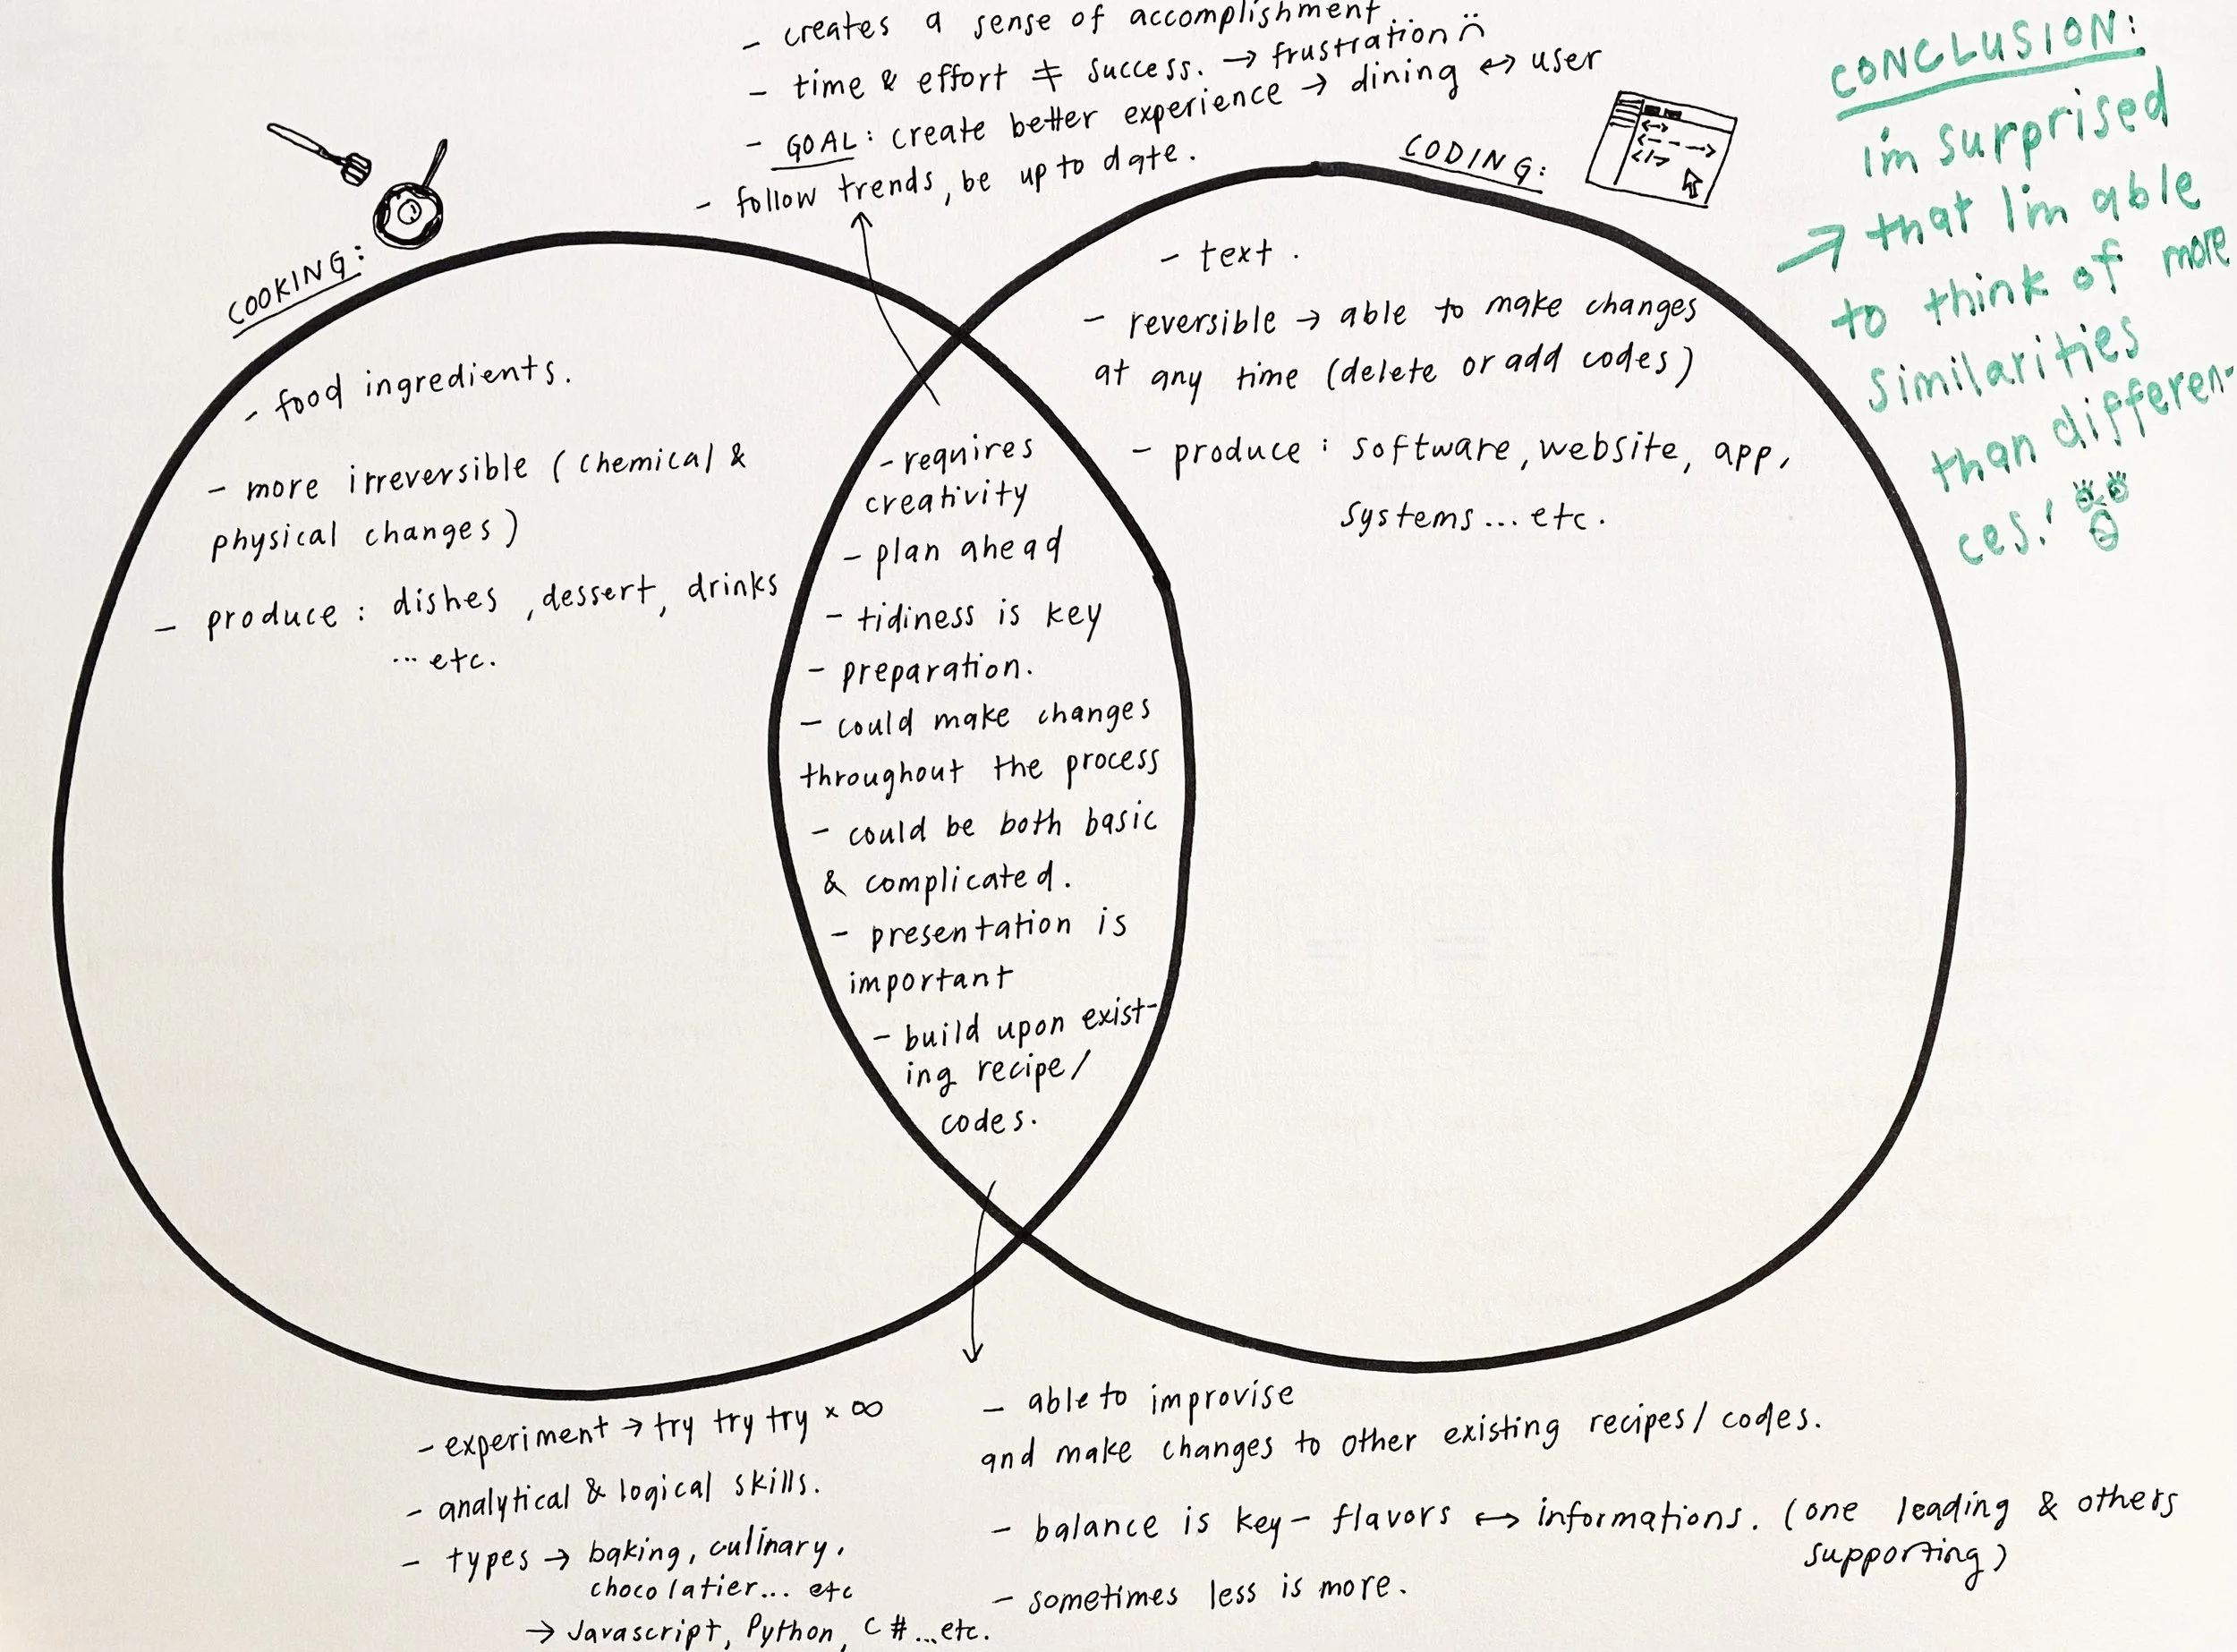 - creates a sense of accomplishment
- time & effort ≠ success. → frustration :(
- GOAL: create better experience → dining ↔ user
- follow trends, be up to date.
COOKING:
- food ingredients.
- more irreversible (chemical &
physical changes)
- produce : dishes, dessert, drinks
... etc.
CODING:
- text.
- reversible → able to make changes
at any time (delete or add codes)
- produce : software, website, app,
systems... etc.
- requires
creativity
- plan ahead
- tidiness is key
- preparation.
- could make changes
throughout the process
- could be both basic
& complicated.
- presentation is
important
- build upon exist-
ing recipe/
codes.
- experiment → try try try × ∞
- analytical & logical skills.
- types → baking, culinary,
chocolatier... etc
→ Javascript, Python, C# ...etc.
- able to improvise
and make changes to other existing recipes/codes.
- balance is key - flavors ↔ informations. (one leading & others
supporting)
- sometimes less is more.
CONCLUSION:
im surprised
→ that I'm able
to think of more
similarities
than differen-
ces!